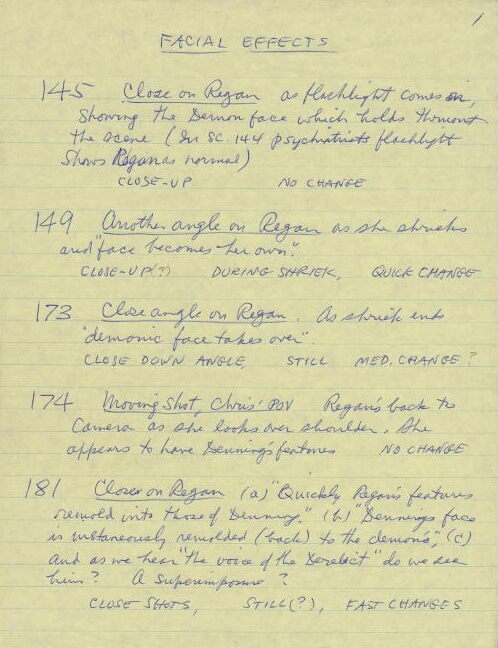 1
FACIAL EFFECTS
145 Close on Regan as flashlight comes on,
showing the Demon face which holds thruout
the scene (In SC. 144 psychiatrists flashlight
shows Regan as normal)
CLOSE-UP NO CHANGE
149 Another angle on Regan as she shrieks
and "face becomes her own".
CLOSE-UP(?) DURING SHRIEK, QUICK CHANGE
173 Close angle on Regan. As shriek ends
"demonic face takes over".
CLOSE DOWN ANGLE, STILL MED. CHANGE?
174 Moving Shot, Chris' POV Regan's back to
Camera as she looks over shoulder. She
appears to have Denning's features NO CHANGE
181 Closer on Regan (a) "Quickly Regan's features
remold into those of Denning." (b) "Dennings face
is instaneously remolded (back) to the demon's", (c)
and as we hear "the voice of the Derelict" do we see
him? A Superimposure?
CLOSE SHOTS, STILL(?), FAST CHANGES